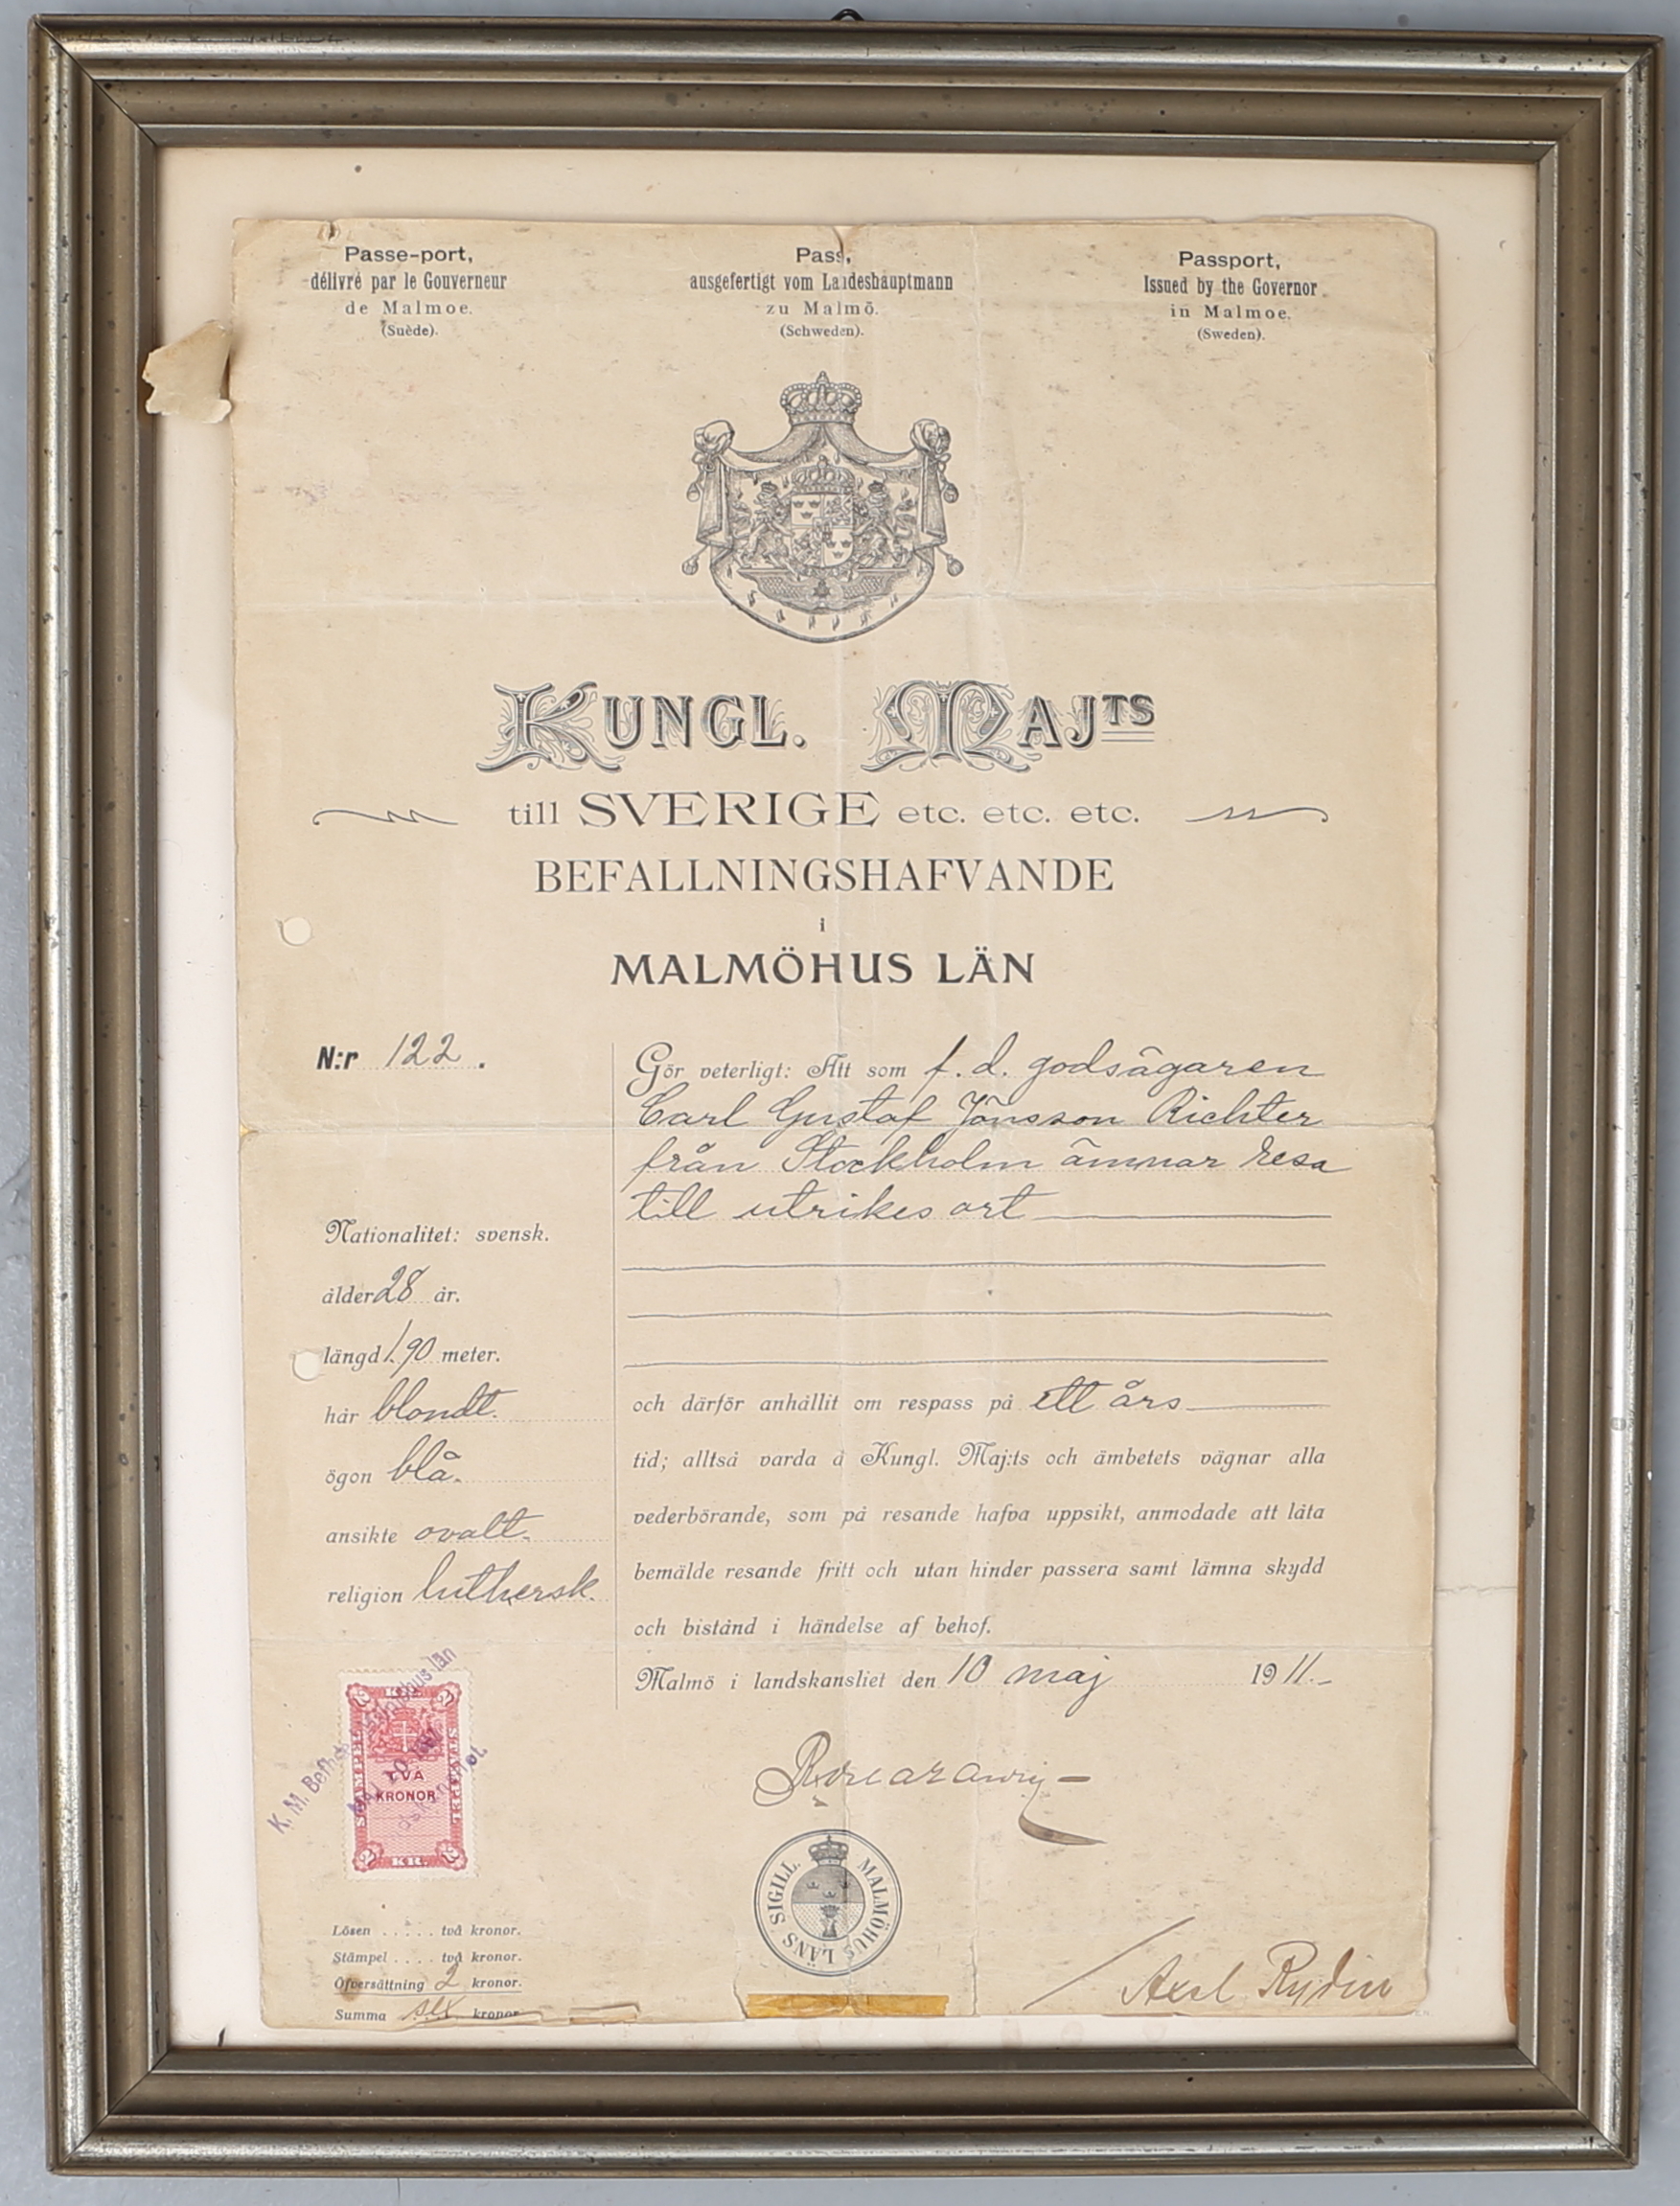 Passe-port,
délivré par le Gouverneur
de Malmoe.
(Suède).
Pass,
ausgefertigt vom Landeshauptmann
zu Malmö.
(Schweden).
Passport,
Issued by the Governor
in Malmoe.
(Sweden).
KUNGL. MAJTS
till SVERIGE etc. etc. etc.
BEFALLNINGSHAFVANDE
i
MALMÖHUS LÄN
N:r 122.
Nationalitet: svensk.
ålder 28 år.
längd 1.90 meter.
hår blondt.
ögon blå.
ansikte ovalt.
religion luthersk.
Gör veterligt: Att som f. d. godsägaren
Carl Gustaf Jönsson Richter
från Stockholm ämnar resa
till utrikes ort
och därför anhållit om respass på ett års
tid; alltså varda å Kungl. Maj:ts och ämbetets vägnar alla
vederbörande, som på resande hafva uppsikt, anmodade att låta
bemälde resande fritt och utan hinder passera samt lämna skydd
och bistånd i händelse af behof.
Malmö i landskansliet den 10 maj 1911.
K. M. Bef
hus län
2 KR. 2
STÄMPEL
TVÅ
KRONOR
2 KR. 2
MALMÖHUS LÄNS SIGILL
Axel Rydin
Lösen ..... två kronor.
Stämpel .... två kronor.
Öfversättning 2 kronor.
Summa sex kronor